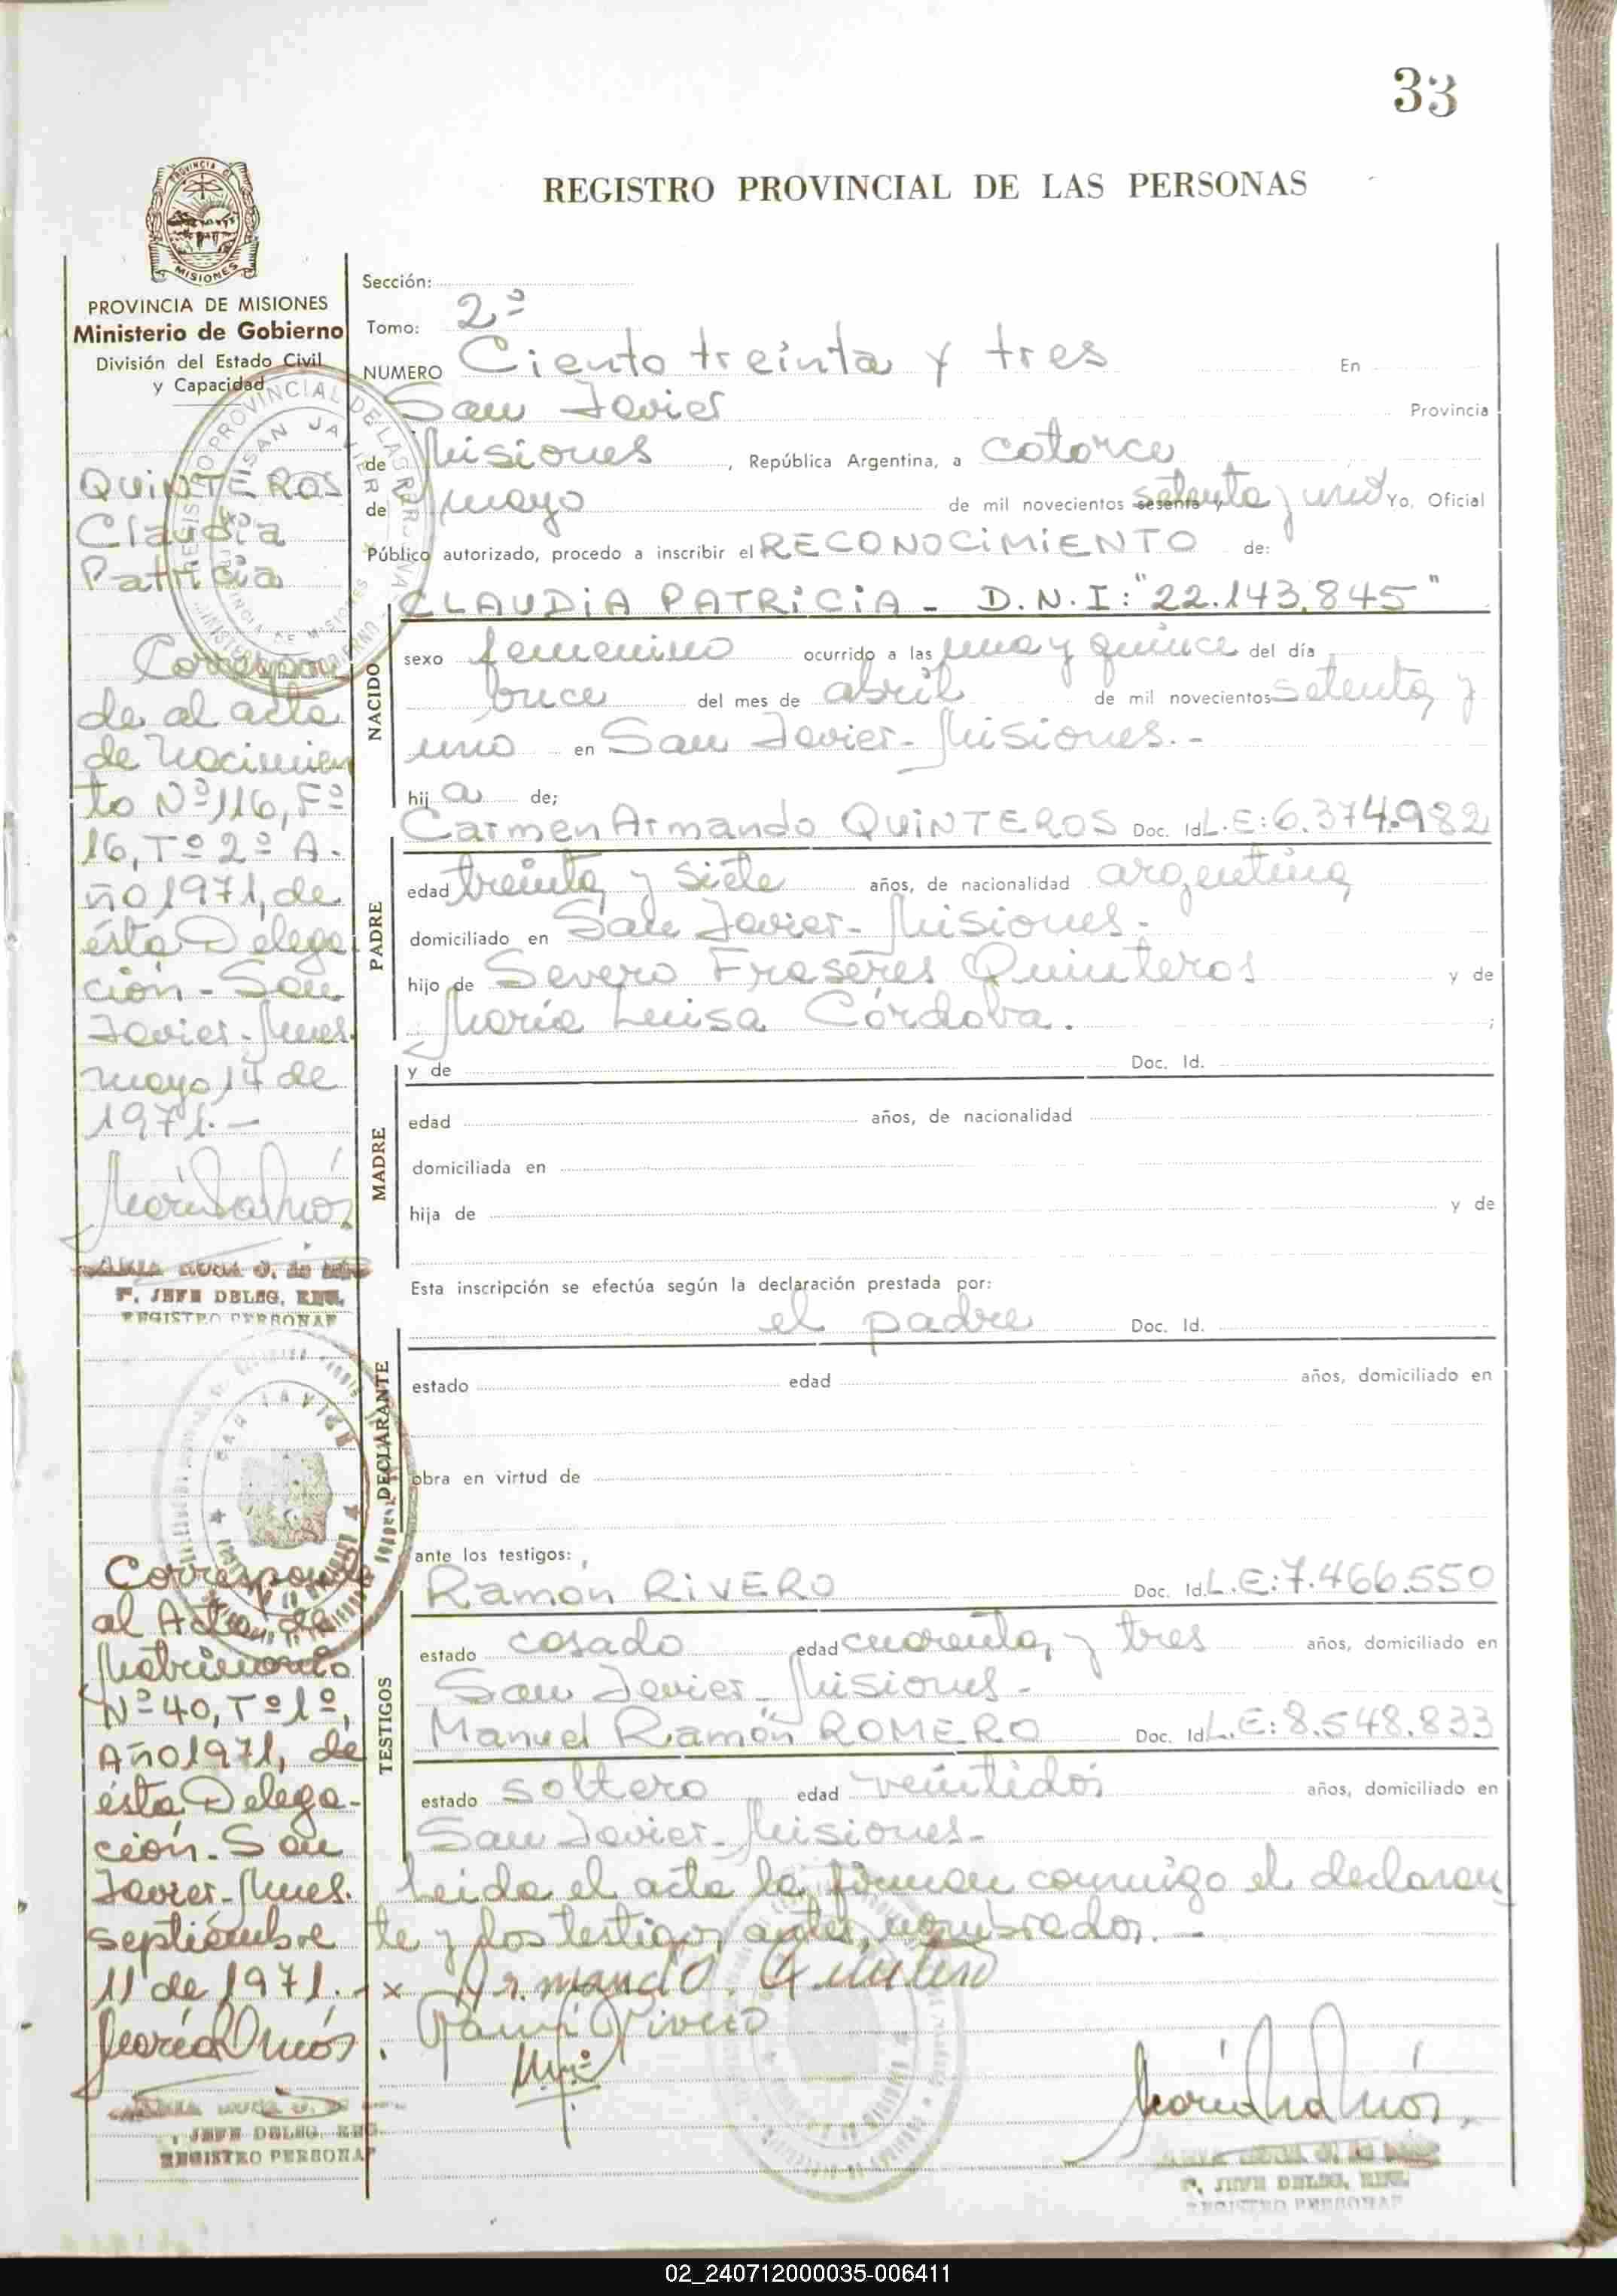 33
REGISTRO PROVINCIAL DE LAS PERSONAS
PROVINCIA DE MISIONES
Ministerio de Gobierno
División del Estado Civil
y Capacidad
QUINTEROS
Claudia
Patricia
Correspon
de al acta
de Nacimien
to Nº 116, Fº
16, Tº 2º A-
ño 1971, de
ésta Delega
ción - San
Javier - Mnes.
mayo, 14 de
1971.-
P. JEFE DELEG. REG.
REGISTRO PERSONAS
Corresponde
al Acta de
Matrimonio
Nº 40, Tº 1º,
Año 1971, de
ésta Delega-
ción. San
Javier - Mnes.
septiembre
11 de 1971.-
JEFE DELEG. REG.
REGISTRO PERSONA
Sección:
Tomo: 2º
NUMERO Ciento treinta y tres En
San Javier Provincia
de Misiones, República Argentina, a catorce
de mayo de mil novecientos sesenta y setenta y uno Yo, Oficial
Público autorizado, procedo a inscribir el RECONOCIMIENTO de:
CLAUDIA PATRICIA - D.N.I: "22.143.845"
NACIDO
sexo femenino ocurrido a las una y quince del día
trece del mes de abril de mil novecientos setenta y
uno en San Javier - Misiones.-
hija de;
PADRE
Carmen Armando QUINTEROS Doc. Id. L.E: 6.374.982
edad treinta y siete años, de nacionalidad argentina
domiciliado en San Javier - Misiones.-
hijo de Severo Quinteros y de
María Luisa Córdoba. ;
MADRE
y de Doc. Id.
edad años, de nacionalidad
domiciliada en
hija de y de
Esta inscripción se efectúa según la declaración prestada por:
DECLARANTE
el padre Doc. Id.
estado edad años, domiciliado en
obra en virtud de
ante los testigos:
TESTIGOS
Ramón RIVERO Doc. Id. L.E: 7.466.550
estado casado edad cuarenta y tres años, domiciliado en
San Javier - Misiones -
Manuel Ramón ROMERO Doc. Id. L.E: 8.548.833
estado soltero edad veintidos años, domiciliado en
San Javier - Misiones -
Leida el acta la firman conmigo el declaran
te y los testigos antes nombrados.-
x Armando Quintero
P. JEFE DELEG. REG.
REGISTRO PERSONAS
02_240712000035-006411